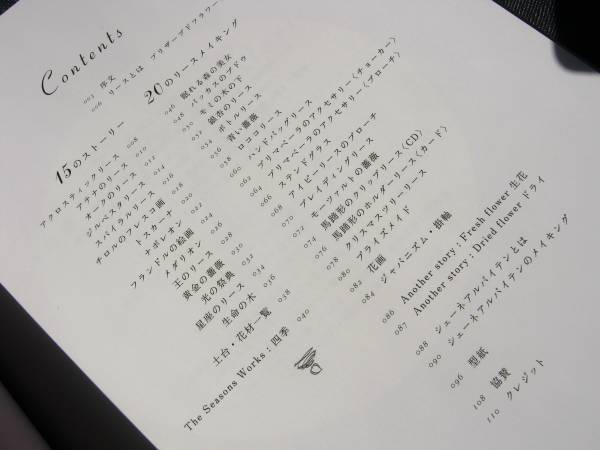 Contents
003 序文
006 リースとは プリザーブドフラワー
15のストーリー
アクロスティックリース 008
アテナのリース 010
オークのリース 012
ジルベスタリース 014
スパイラルリース 016
チロルのフレスコ画 018
トスカーナ 020
ナポレオン 022
フランドルの絵画 024
メダリオン 026
王のリース 028
黄金の薔薇 030
光の祭典 032
星座のリース 034
生命の木 036
土台・花材一覧 038
The Seasons Works：四季 040
20のリースメイキング
046 眠れる森の美女
048 バッカスのブドウ
050 モミの木の下
052 銀杏のリース
054 ボトルリース
056 青い薔薇
058 ロココリース
060 ハンドバッグリース
062 プリマベーラのアクセサリー〈チョーカー〉
064 プリマベーラのアクセサリー〈ブローチ〉
066 ステンドグラス
068 アイビーリースのブローチ
070 ブレイディングリース
072 モーツァルトの薔薇
074 馬蹄形のクリップリース〈CD〉
076 馬蹄形のホルダーリース〈カード〉
078 クリスマスツリーリース
080 ブライズメイド
082 花画
084 ジャパニズム・掛軸
086 Another story : Fresh flower 生花
087 Another story : Dried flower ドライ
088 シェーネアルバイテンとは
090 シェーネアルバイテンのメイキング
096 型紙
108 協賛
110 クレジット